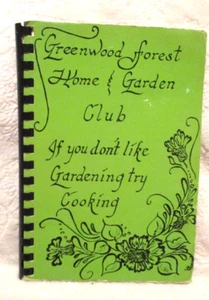 Greenwood Forest
Home & Garden
Club
If you don't like
Gardening try
Cooking